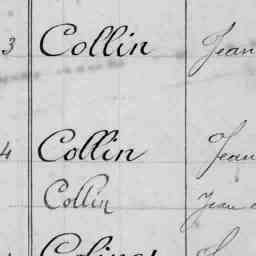 3 Collin Jean
4 Collin Jean
Collin Jean